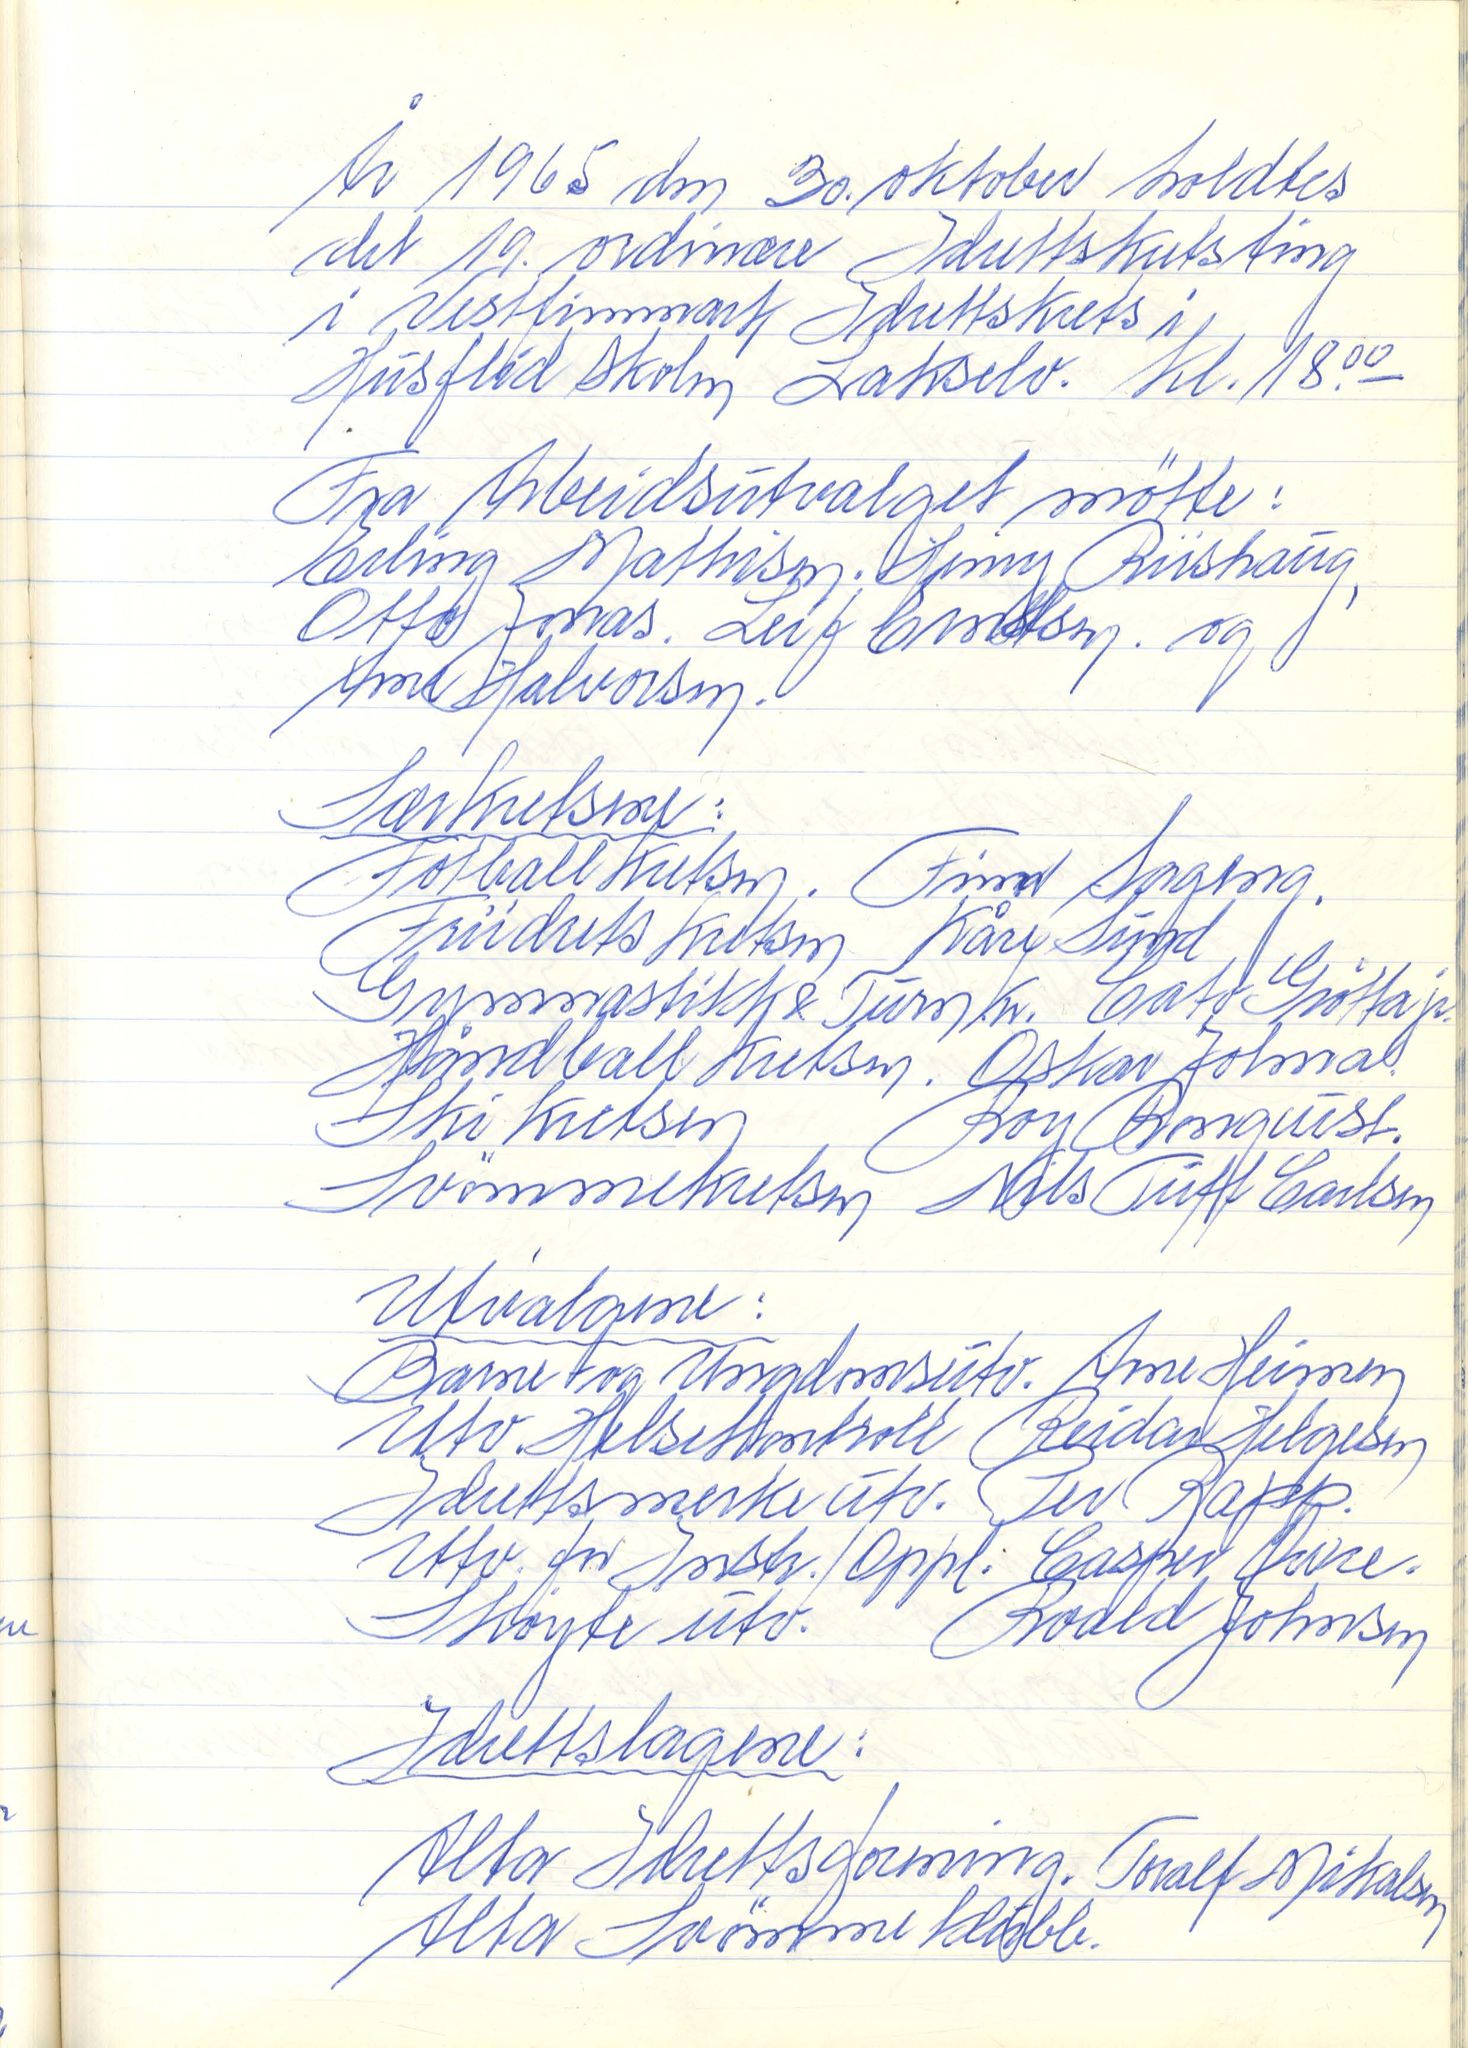 År 1965 den 30. oktober holdtes
det 19. ordinære Idrettskretsting
i Vestfinnmark Idrettskrets i
Husflid Skolen Lakselv. kl. 18.00
Fra Arbeidsutvalget mötte:
Erling Mathisen. Jimy Riishaug,
Otto Jonas. Leif Arntsen. og
Arne Halvorsen.
Særkretsene:
Fotballkretsen. Finn Sageng.
Friidrettskretsen Kåre Sund
Gymnastikk & Turn kr. Cato Grötta jr.
Håndballkretsen. Oskar Johnas.
Ski kretsen Roy Ronquist.
Svömmekretsen Nils Tuff Carlsen
Utvalgene:
Barne og Ungdomsutv. Arne Heimen
Utv. Helsekontroll Reidar Helgesen
Idrettsmerke utv. Per Rapp.
Utv. for Instr./Oppl. Casper
Sköyte utv. Roald Johnsen
Idrettslagene:
Alta Idrettsforening. Toralf Mikalsen
Alta Svömmeklubb.